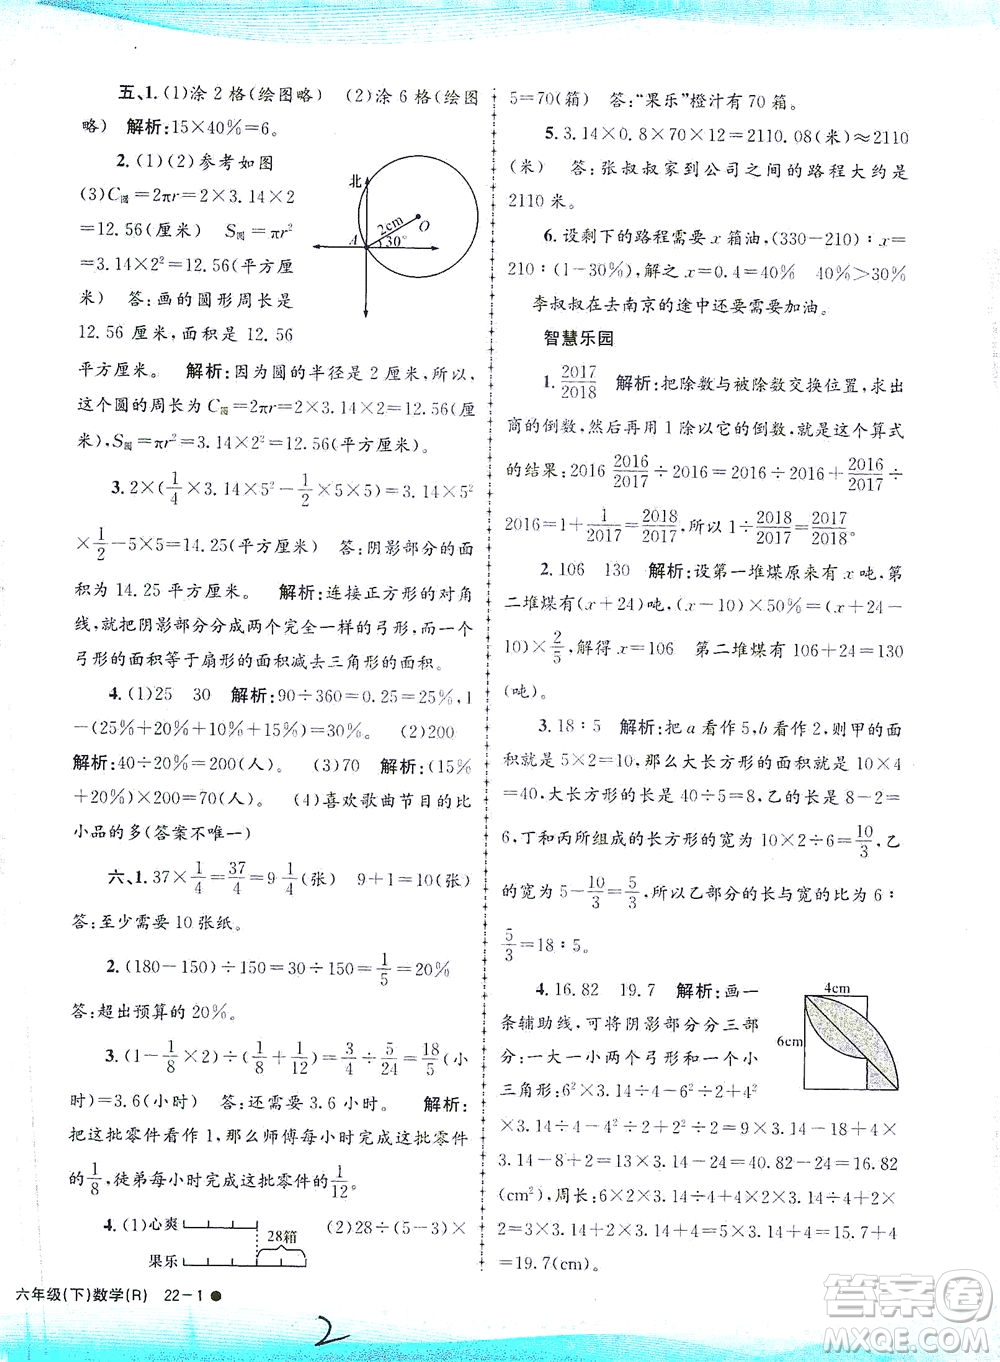 五、1. (1)涂 2 格(绘图略) (2)涂 6 格(绘图
略) 解析:15×40%=6。
2. (1)(2)参考如图
(3)C圆=2πr=2×3.14×2
=12.56(厘米) S圆=πr²
=3.14×2²=12.56(平方厘
米) 答:画的圆形周长是
12.56 厘米,面积是 12.56
平方厘米。 解析:因为圆的半径是 2 厘米,所以,
这个圆的周长为 C圆=2πr=2×3.14×2=12.56(厘
米),S圆=πr²=3.14×2²=12.56(平方厘米)。
北
2cm
O
A
30°
3. 2×(1/4×3.14×5²－1/2×5×5)=3.14×5²
×1/2－5×5=14.25(平方厘米) 答:阴影部分的面
积为 14.25 平方厘米。 解析:连接正方形的对角
线,就把阴影部分分成两个完全一样的弓形,而一个
弓形的面积等于扇形的面积减去三角形的面积。
4. (1)25 30 解析:90÷360=0.25=25%,1
－(25%+20%+10%+15%)=30% (2)200
解析:40÷20%=200(人)。 (3)70 解析:(15%
+20%)×200=70(人)。 (4)喜欢歌曲节目的比
小品的多(答案不唯一)
六、1. 37×1/4=37/4=9 1/4(张) 9+1=10(张)
答:至少需要 10 张纸。
2. (180－150)÷150=30÷150=1/5=20%
答:超出预算的 20%。
3. (1－1/8×2)÷(1/8+1/12)=3/4÷5/24=18/5(小
时)=3.6(小时) 答:还需要 3.6 小时。 解析:
把这批零件看作 1,那么师傅每小时完成这批零件
的1/8,徒弟每小时完成这批零件的1/12。
4. (1)心爽 (2)28÷(5－3)×
28箱
果乐
5=70(箱) 答:“果乐”橙汁有 70 箱。
5. 3.14×0.8×70×12=2110.08(米)≈2110
(米) 答:张叔叔家到公司之间的路程大约是
2110 米。
6. 设剩下的路程需要 x 箱油,(330－210)∶x=
210∶(1－30%),解之 x=0.4=40% 40%>30%
李叔叔在去南京的途中还要需要加油。
智慧乐园
1. 2017/2018 解析:把除数与被除数交换位置,求出
商的倒数,然后再用 1 除以它的倒数,就是这个算式
的结果:2016 2016/2017÷2016=2016÷2016+2016/2017÷
2016=1+1/2017=2018/2017,所以 1÷2018/2017=2017/2018。
2. 106 130 解析:设第一堆煤原来有 x 吨,第
二堆煤有(x+24)吨,(x－10)×50%=(x+24－
10)×2/5,解得:x=106 第二堆煤有 106+24=130
(吨)。
3. 18∶5 解析:把 a 看作 5,b 看作 2,则甲的面
积就是 5×2=10,那么大长方形的面积是 10×4
=40,大长方形的长是 40÷5=8,乙的长是 8－2=
6,丁和丙所组成的长方形的宽为 10×2÷6=10/3,乙
的宽为 5－10/3=5/3,所以乙部分的长与宽的比为 6∶
5/3=18∶5。
4. 16.82 19.7 解析:画一
条辅助线,可将阴影部分分三部
分:一大一小两个弓形和一个小
三角形:6²×3.14÷4－6²÷2+4²
4cm
6cm
×3.14÷4－4²÷2+(6－4)×4÷2=9×3.14+4×
3.14－18－8+4=13×3.14－22=40.82－22=16.82
(cm²),周长:6×2×3.14÷4+4×2×3.14÷4+2×
2=3×3.14+2×3.14+4=5×3.14+4=15.7+4
=19.7(cm)。
六年级(下)数学(R) 22－1
2
答案圈
MXQE.COM